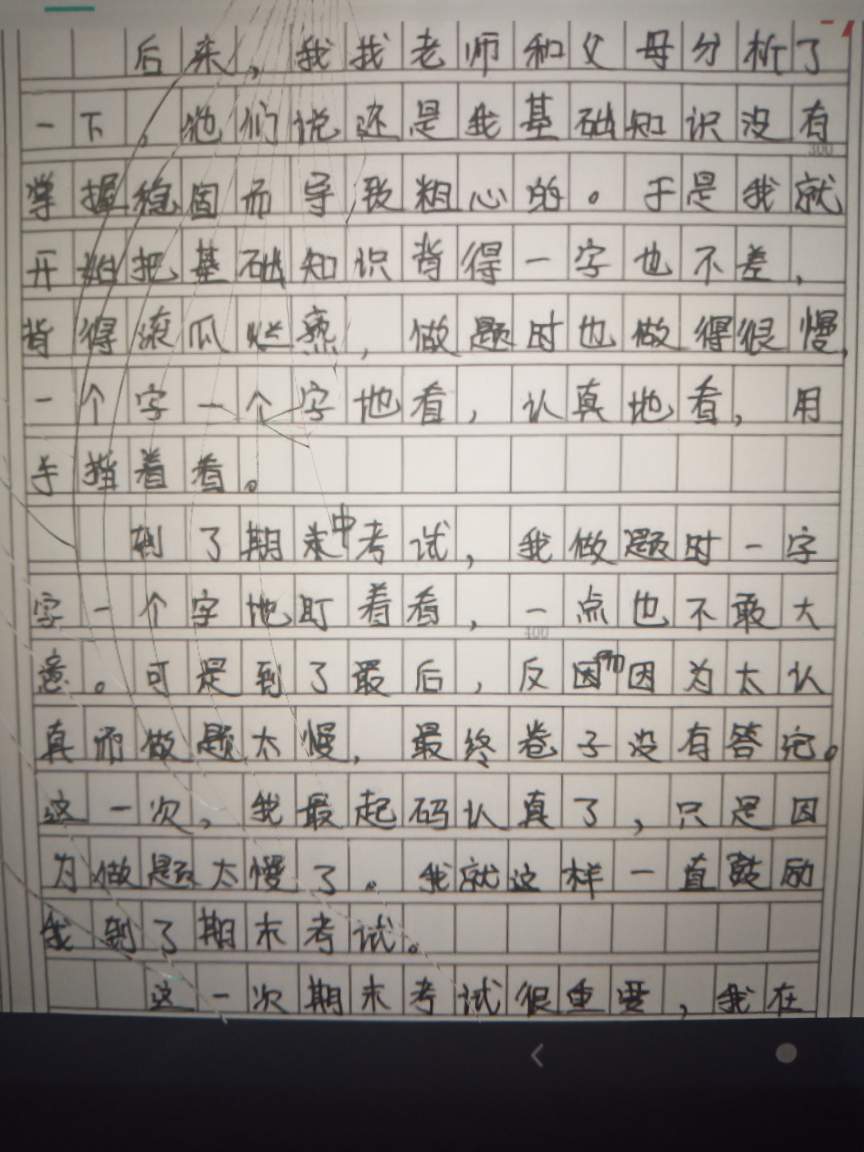 后来，我找老师和父母分析了
一下，他们说还是我基础知识没有
300
掌握稳固而导致粗心的。于是我就
开始把基础知识背得一字也不差，
背得滚瓜烂熟，做题时也做得很慢，
一个字一个字地看，认真地看，用
手挡着看。
到了期末中考试，我做题时一字
字一个字地盯着看，一点也不敢大
400
意。可是到了最后，反因而因为太认
真而做题太慢，最终卷子没有答完。
这一次，我最起码认真了，只是因
为做题太慢了。我就这样一直鼓励
我到了期末考试。
这一次期末考试很重要，我在